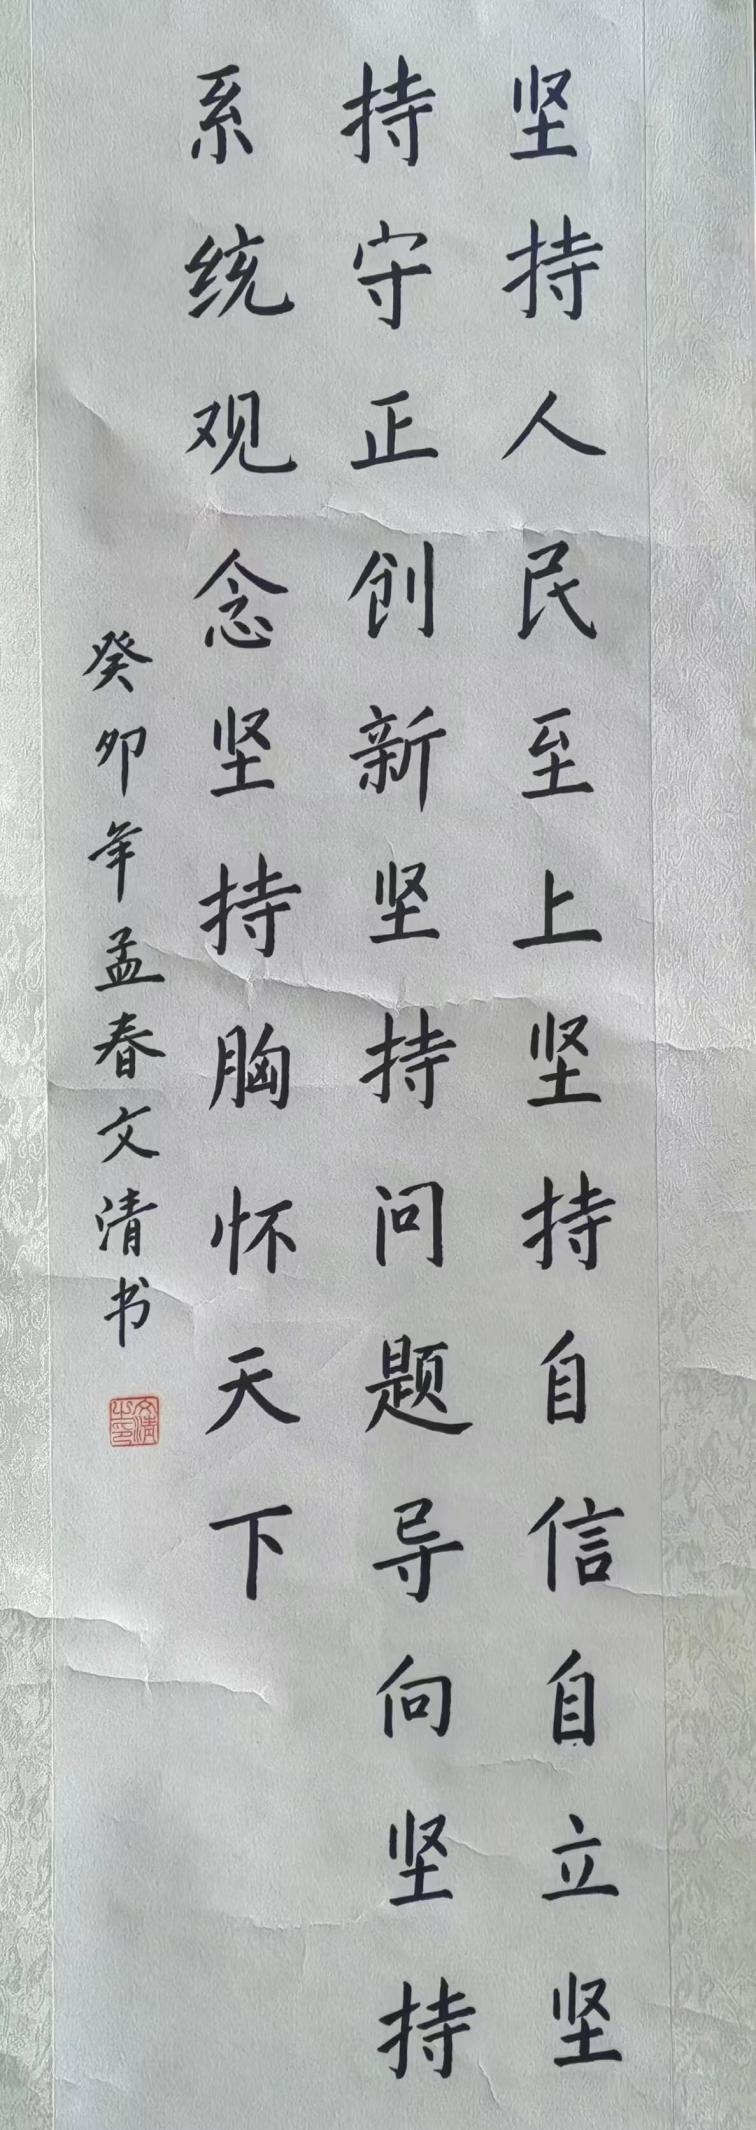 坚持人民至上坚持自信自立坚
持守正创新坚持问题导向坚持
系统观念坚持胸怀天下
癸卯年孟春文清书
文清之印